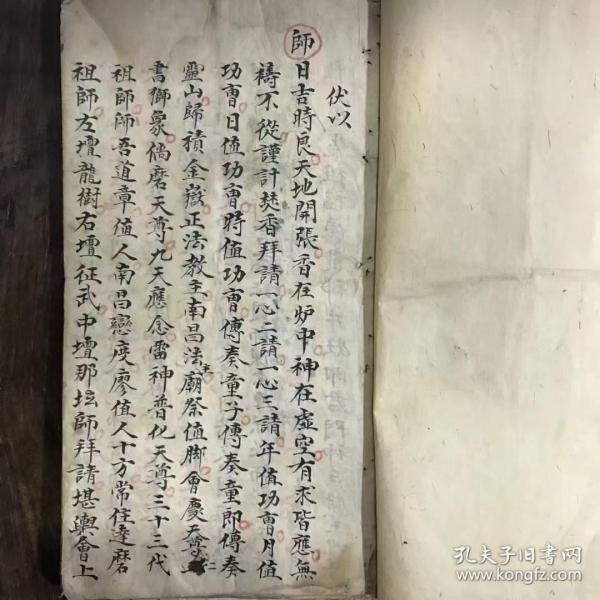 伏以
師日吉時良天地開張香在炉中神在虛空有求皆應無
禱不從謹計焚香拜請一心二請一心三請年值功曹月值
功曹日值功曹時值功曹傳奏童子傳奏童郎傳奏
靈山歸積金嶽正法教主南昌法主廟祭值脚會慶天尊
書獅象倘磨天尊九天應念雷神普化天尊三十三代
祖師師吾道章值人南昌戀度廖值人十方常住達磨
祖師左壇龍樹右壇征武中壇那坛師拜請堪輿會上
孔夫子旧书网
www.kongfz.com